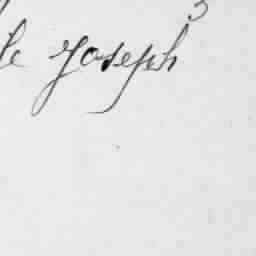 le Joseph